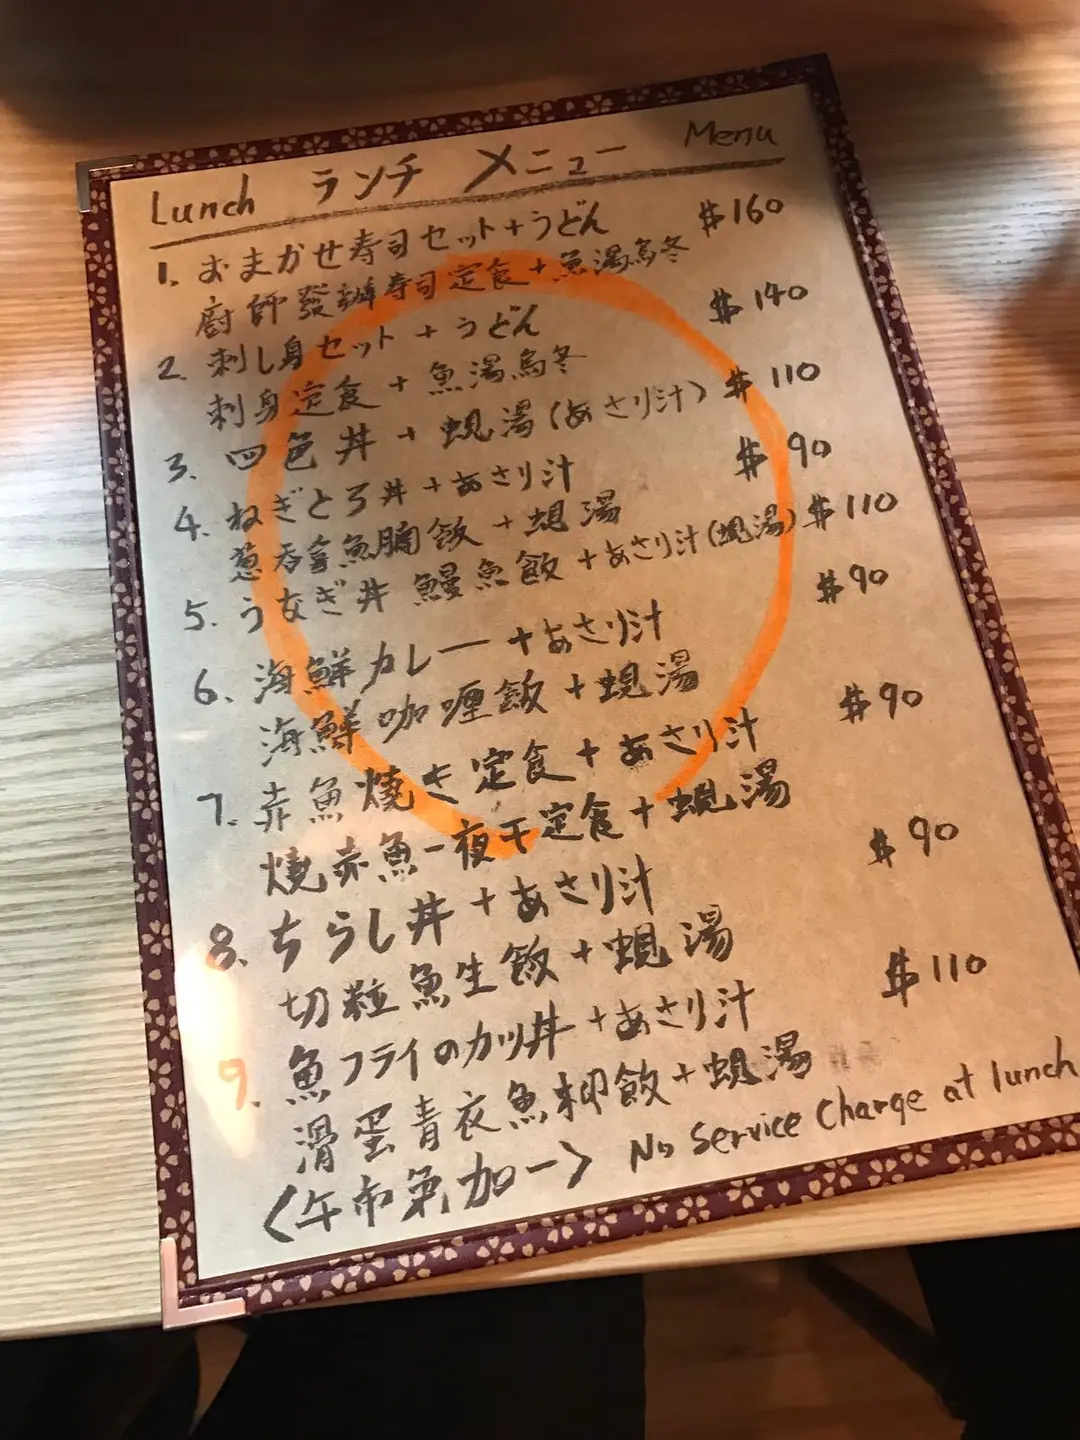 Lunch ランチ メニュー Menu
1. おまかせ寿司セット+うどん $160
廚師發辦寿司定食+魚湯烏冬
2. 刺し身セット+うどん $140
刺身定食+魚湯烏冬
3. 四色丼+蜆湯(あさり汁) $110
4. ねぎとろ丼+あさり汁 $90
葱吞拿魚腩飯+蜆湯
5. うなぎ丼 鰻魚飯+あさり汁(蜆湯) $110
6. 海鮮カレー+あさり汁 $90
海鮮咖喱飯+蜆湯
7. 赤魚焼き定食+あさり汁 $90
燒赤魚一夜干定食+蜆湯
8. ちらし丼+あさり汁 $90
切粒魚生飯+蜆湯
9. 魚フライのカツ丼+あさり汁 $110
滑蛋青衣魚柳飯+蜆湯
<午市免加一> No Service Charge at lunch